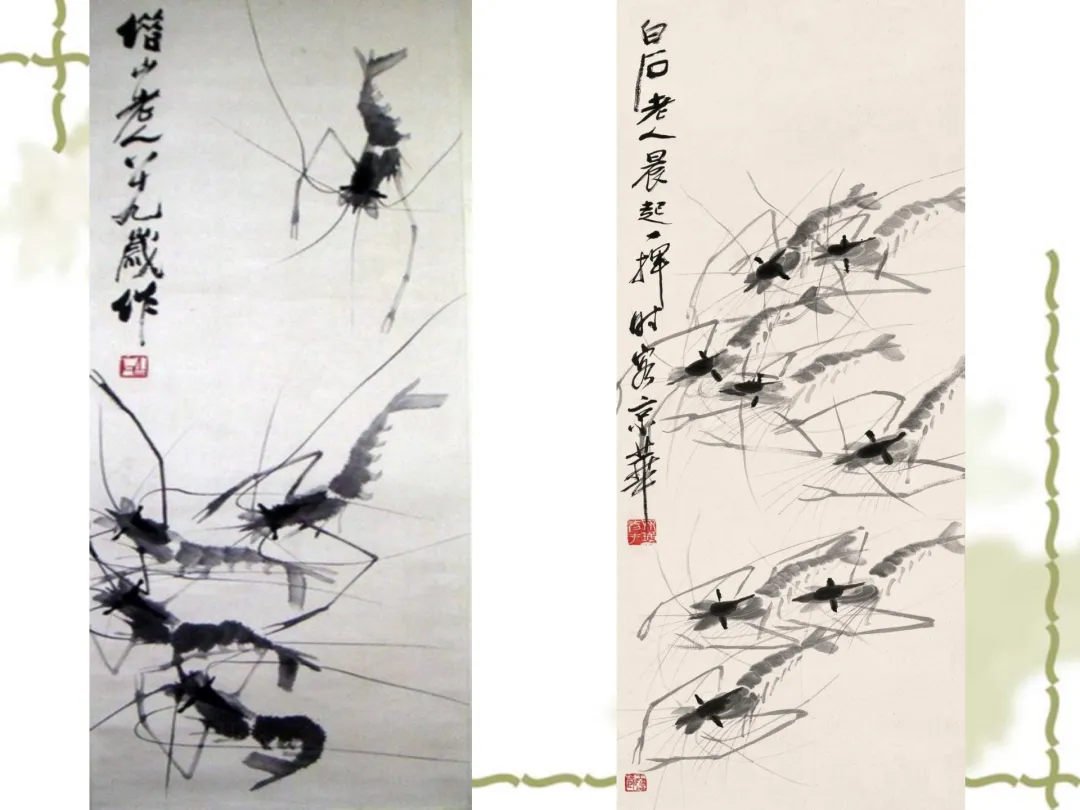 借山老人八十九歲作
白石老人晨起一揮时客京華